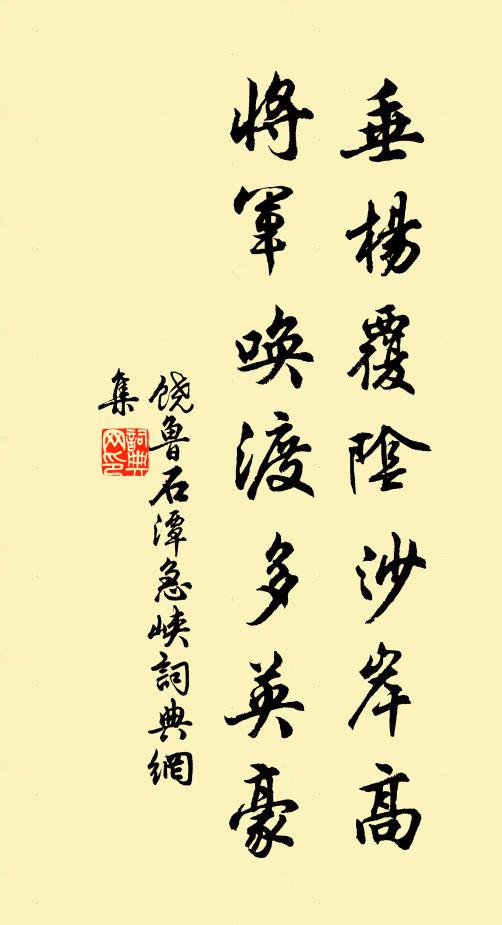 垂楊覆陰沙岸高
將軍喚渡多英豪
饶魯石潭急峽詞典網
集
詞典网印